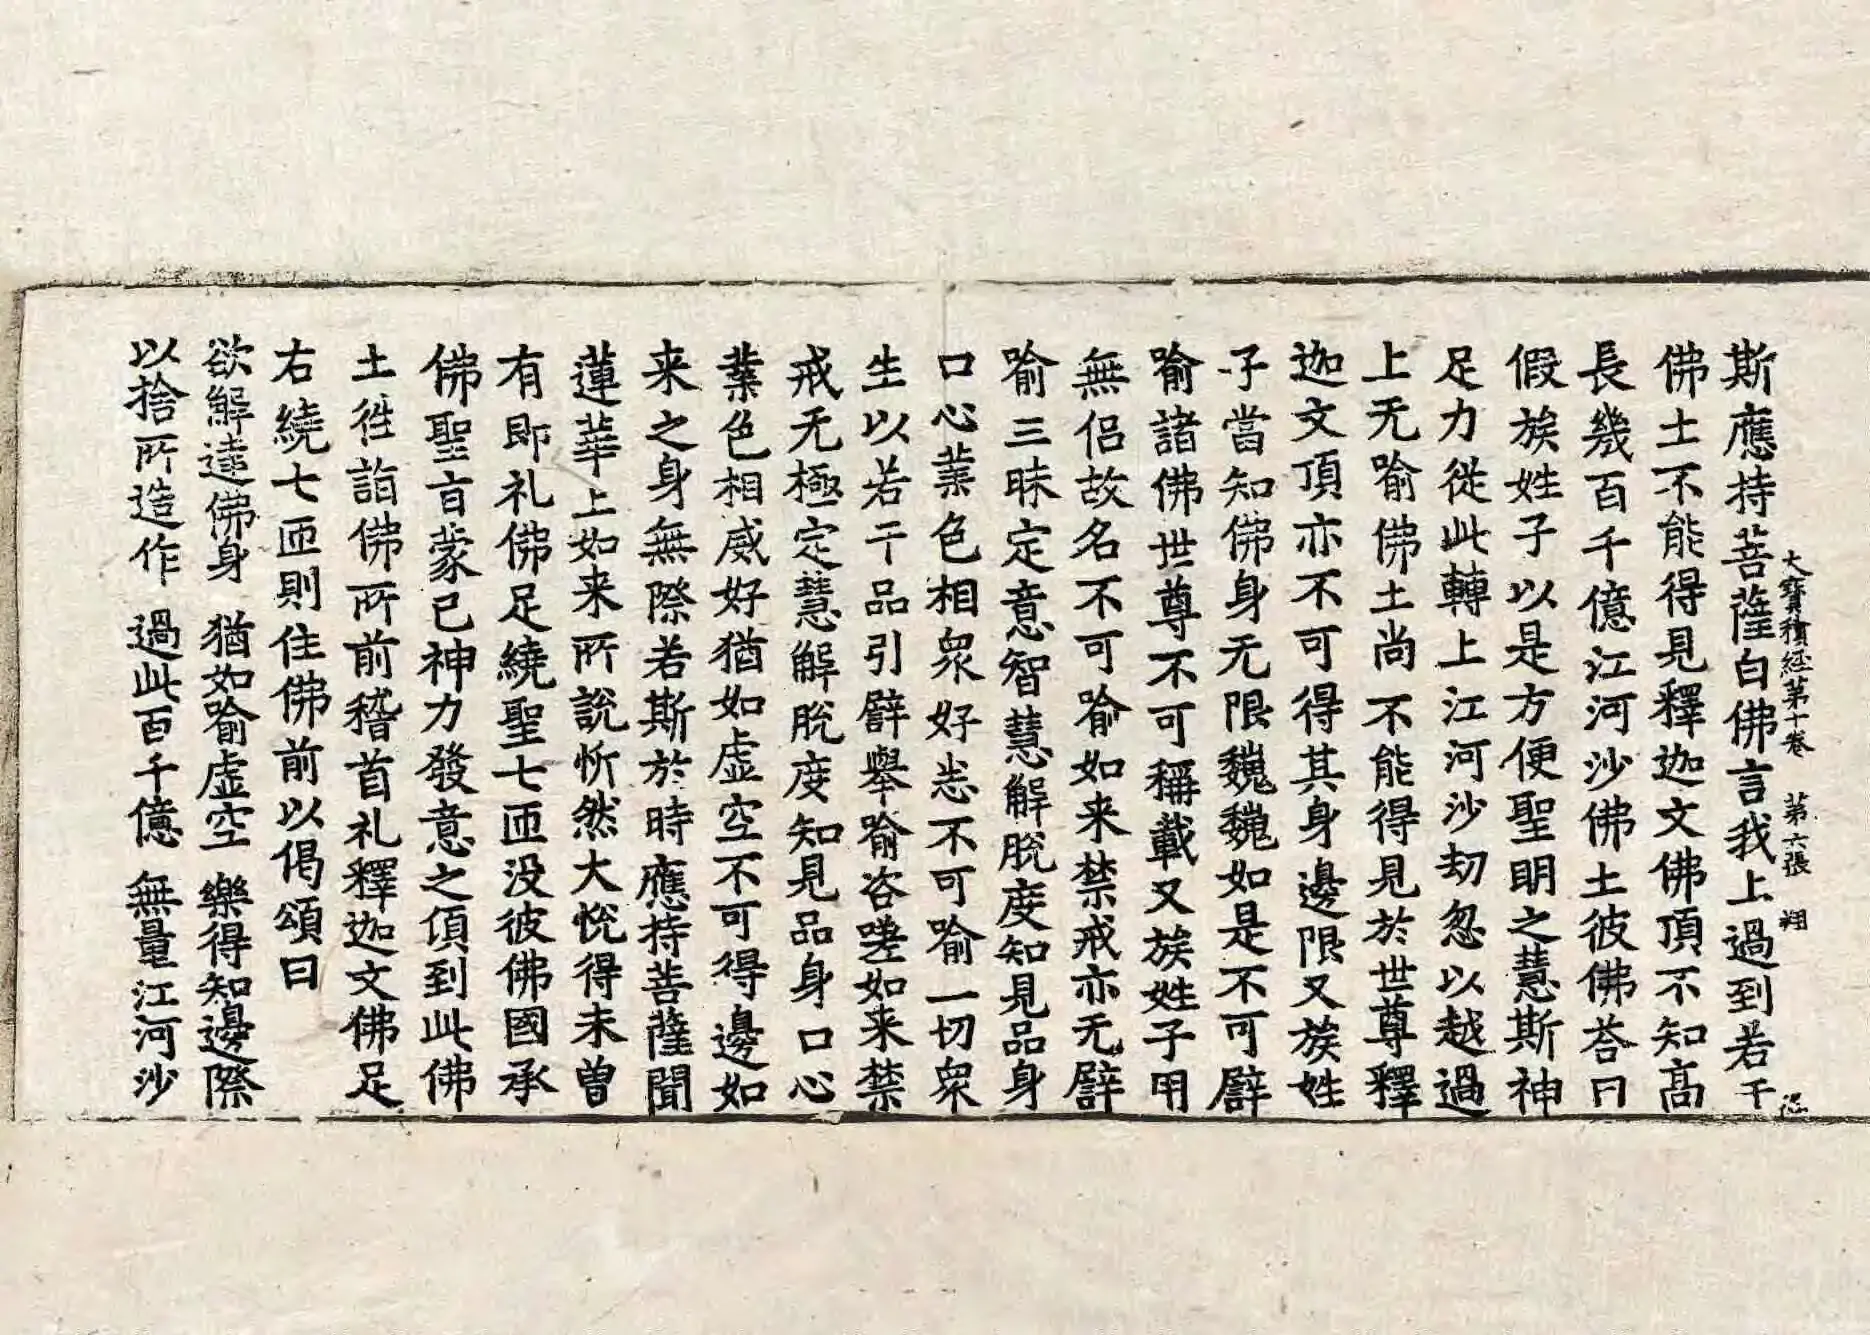 大寳積經第十卷　第六張　翔
斯應持菩薩白佛言我上過到若干
佛土不能得見釋迦文佛頂不知高
長幾百千億江河沙佛土彼佛荅曰
假族姓子以是方便聖明之慧斯神
足力從此轉上江河沙劫忽以越過
上无喻佛土尚不能得見於世尊釋
迦文頂亦不可得其身邊限又族姓
子當知佛身无限魏魏如是不可譬
喻諸佛世尊不可稱載又族姓子用
無侶故名不可喻如来禁戒亦无譬
喻三昧定意智慧解脫度知見品身
口心業色相衆好恙不可喻一切衆
生以若干品引譬舉喻咨嗟如来禁
戒无極定慧解脫度知見品身口心
業色相威好猶如虛空不可得邊如
来之身無際若斯於時應持菩薩聞
蓮華上如来所說忻然大悅得未曾
有即礼佛足繞聖七匝没彼佛國承
佛聖旨蒙己神力發意之頃到此佛
土徃詣佛所前稽首礼釋迦文佛足
右繞七匝則住佛前以偈頌曰
欲解達佛身　猶如喻虛空　樂得知邊際
以捨所造作　過此百千億　無量江河沙